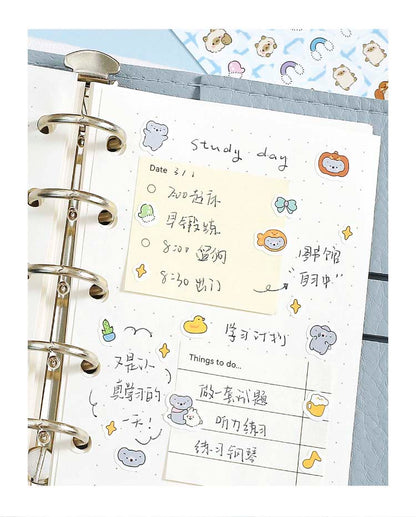 study day
Date 3/1
7:00起床
早锻炼
8:00 遛狗
8:30 出门
图书馆
"自习中"
学习计划
又是认
真学习的
一天!
Things to do...
做一套试题
听力练习
练习钢琴